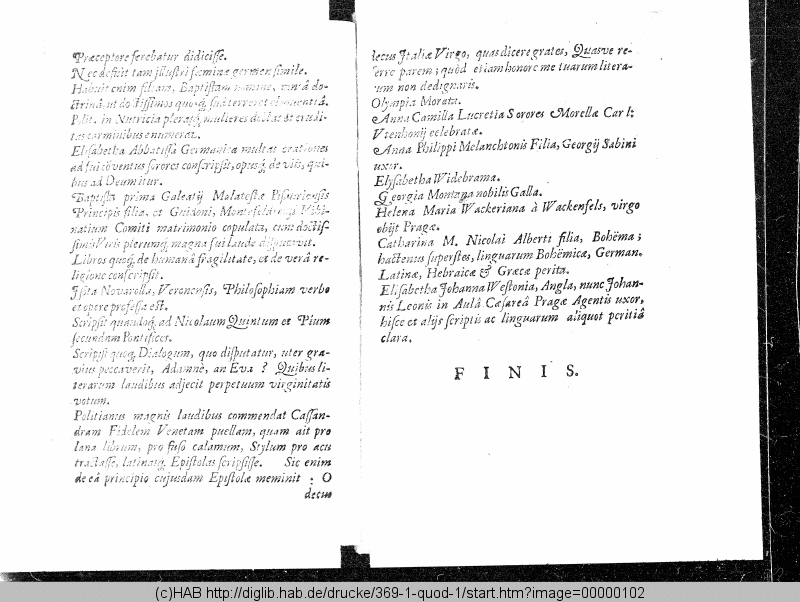 Præceptore ferebatur didicisse.
Nec defuit tam illustri fœminæ germen simile.
Habuit enim filiam, Baptistam nomine, do-
ctrinâ, ut doctissimos quoq; sua terreret eloquentiâ.
Polit. in Nutricia pleraq; mulieres doctas et erudi-
tas carminibus enumerat.
Elisabetha Abbatissa Germanica multas orationes
ad sui cōventus sorores conscripsit, opusq; de viis, qui-
bus ad Deum itur.
Baptista prima Galeatij Malatestæ Pisauriensis
Principis filia, et Guidoni, Montefeldrensi Urbi-
natium Comiti matrimonio copulata, cum doctis-
simis Viris plerumq; magna sui laude disputavit.
Libros quoq; de humanâ fragilitate, et de verâ re-
ligione conscripsit.
Isita Novarolla, Veronensis, Philosophiam verbo
et opere professa est.
Scripsit quandoq; ad Nicolaum Quintum et Pium
secundum Pontifices.
Scripsit quoq; Dialogum, quo disputatur, uter gra-
vius peccaverit, Adamnè, an Eva? Quibus li-
terarum laudibus adjecit perpetuum virginitatis
votum.
Politianus magnis laudibus commendat Cassan-
dram Fidelem Venetam puellam, quam ait pro
lana librum, pro fuso calamum, Stylum pro acu
tractasse, latinasq; Epistolas scripsisse. Sic enim
de eâ principio cujusdam Epistolæ meminit: O
decus
decus Italiæ Virgo, quas dicere grates, Quasve re-
ferre parem; quòd etiam honore me tuarum litera-
rum non dedignaris.
Olympia Morata.
Anna Camilla Lucretia Sorores Morellæ Carl:
Utenhonij celebratæ.
Anna Philippi Melanchtonis Filia, Georgij Sabini
uxor.
Elysabetha Widebrama.
Georgia Montana nobilis Galla.
Helena Maria Wackeriana à Wackenfels, virgo
obijt Pragæ.
Catharina M. Nicolai Alberti filia, Bohëma;
hactenus superstes, linguarum Bohëmicæ, German.
Latinæ, Hebraicæ & Græcæ perita.
Elisabetha Johanna Westonia, Angla, nunc Johan-
nis Leonis in Aulâ Cæsareâ Pragæ Agentis uxor,
hisce et alijs scriptis ac linguarum aliquot peritiâ
clara.
FINIS.
(c)HAB http://diglib.hab.de/drucke/369-1-quod-1/start.htm?image=00000102